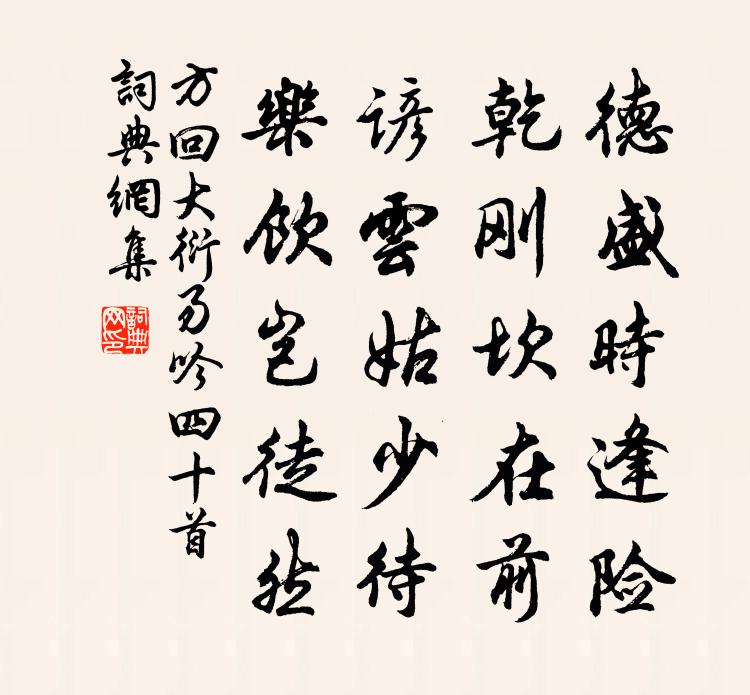 德盛時逢险
乾刚坎在前
諺雲姑少待
樂飲岂徒然
方回大衍易吟四十首
詞典網集
詞典网印